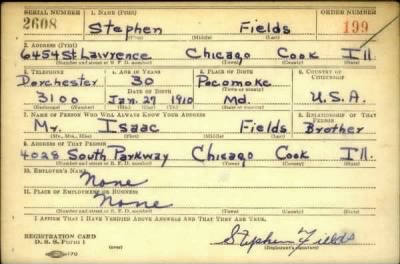 SERIAL NUMBER 1. NAME (Print) ORDER NUMBER
2608 Stephen Fields 199
(First) (Middle) (Last)
2. ADDRESS (Print)
6454 St Lawrence Chicago Cook Ill
(Number and street or R. F. D. number) (Town) (County) (State)
3. TELEPHONE 4. AGE IN YEARS 5. PLACE OF BIRTH 6. COUNTRY OF CITIZENSHIP
Dorchester 30 Pocomoke
DATE OF BIRTH (Town or county)
3100 Jan. 27 1910 Md. U.S.A.
(Exchange) (Number) (Mo.) (Day) (Yr.) (State or country)
7. NAME OF PERSON WHO WILL ALWAYS KNOW YOUR ADDRESS 8. RELATIONSHIP OF THAT PERSON
Mr. Isaac Fields Brother
(Mr., Mrs., Miss) (First) (Middle) (Last)
9. ADDRESS OF THAT PERSON
4028 South Parkway Chicago Cook Ill.
(Number and street or R. F. D. number) (Town) (County) (State)
10. EMPLOYER'S NAME
None
11. PLACE OF EMPLOYMENT OR BUSINESS
None
(Number and street or R. F. D. number) (Town) (County) (State)
I AFFIRM THAT I HAVE VERIFIED ABOVE ANSWERS AND THAT THEY ARE TRUE.
REGISTRATION CARD
D. S. S. Form 1 Stephen Fields
(Registrant's signature)